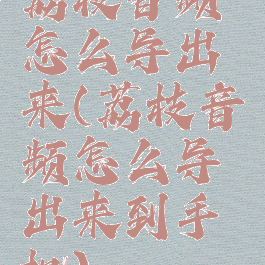 荔枝音频
怎么导出
来(荔枝音
频怎么导
出来到手
机)